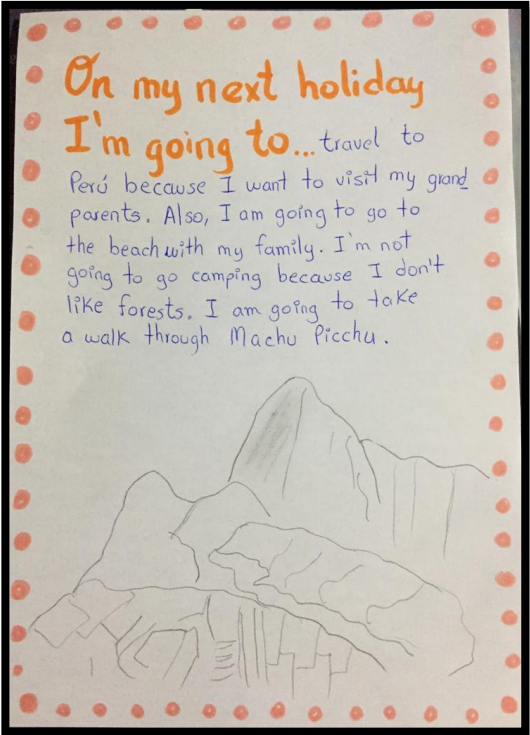 On my next holiday
I'm going to... travel to
Perú because I want to visit my grand
parents. Also, I am going to go to
the beach with my family. I'm not
going to go camping because I don't
like forests. I am going to take
a walk through Machu Picchu.